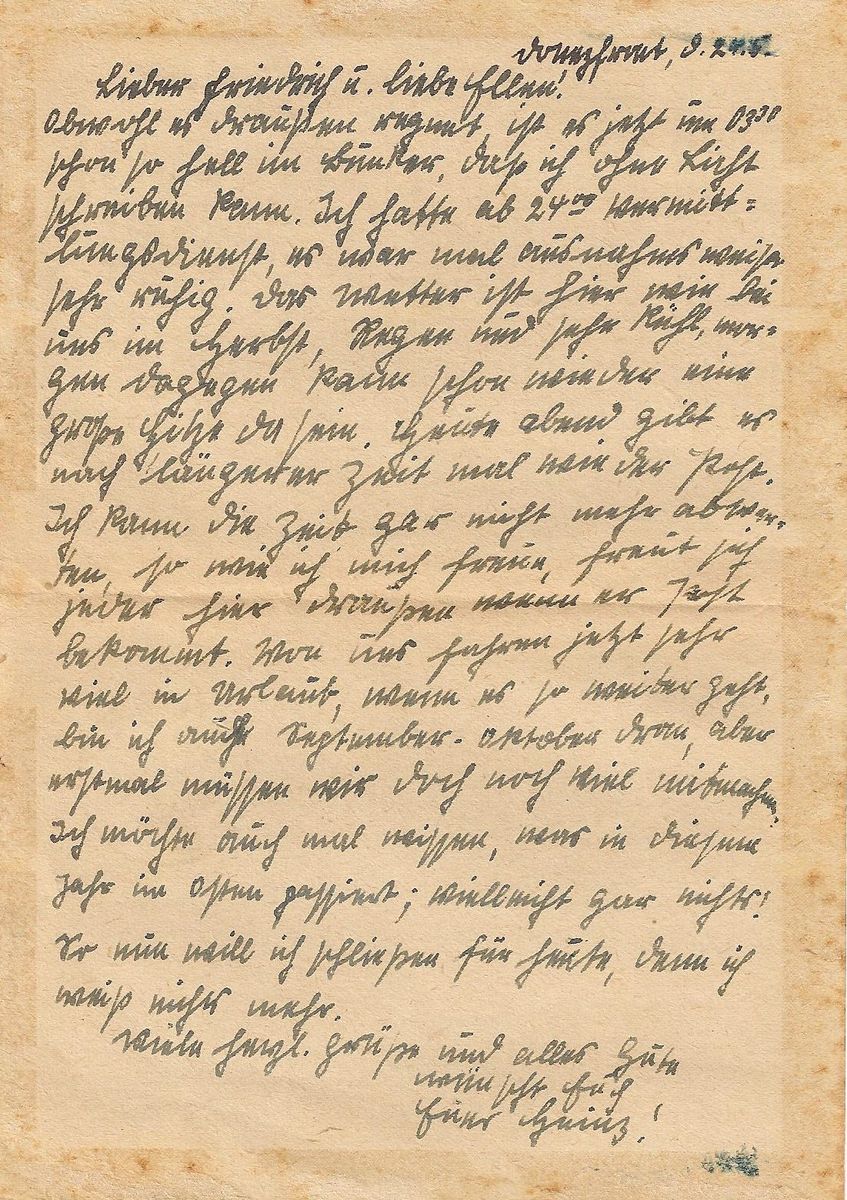 Donezfront, d. 24.5.
Lieber Friedrich u. liebe Ellen!
Obwohl es draußen regnet, ist es jetzt um 03³⁰
schon so hell im Bunker, daß ich ohne Licht
schreiben kann. Ich hatte ab 24⁰⁰ Vermitt=
lungsdienst, es war mal ausnahmsweise
sehr ruhig. Das Wetter ist hier wie bei
uns im Herbst, Regen und sehr kühl, mor=
gen dagegen kann schon wieder eine
große Hitze da sein. Heute abend gibt es
nach längerer Zeit mal wieder Post.
Ich kann die Zeit gar nicht mehr abwar=
ten, so wie ich mich freue, freut sich
jeder hier draußen wenn er Post
bekommt. Von uns fahren jetzt sehr
viel in Urlaub, wenn es so weiter geht,
bin ich auch September-Oktober dran, aber
erstmal müssen wir doch noch viel mitmachen.
Ich möchte auch mal wissen, was in diesem
Jahr im Osten passiert; vielleicht gar nichts!
So nun will ich schließen für heute, denn ich
weiß nichts mehr.
Viele herzl. Grüße und alles Gute
wünscht Euch
Euer Heinz!